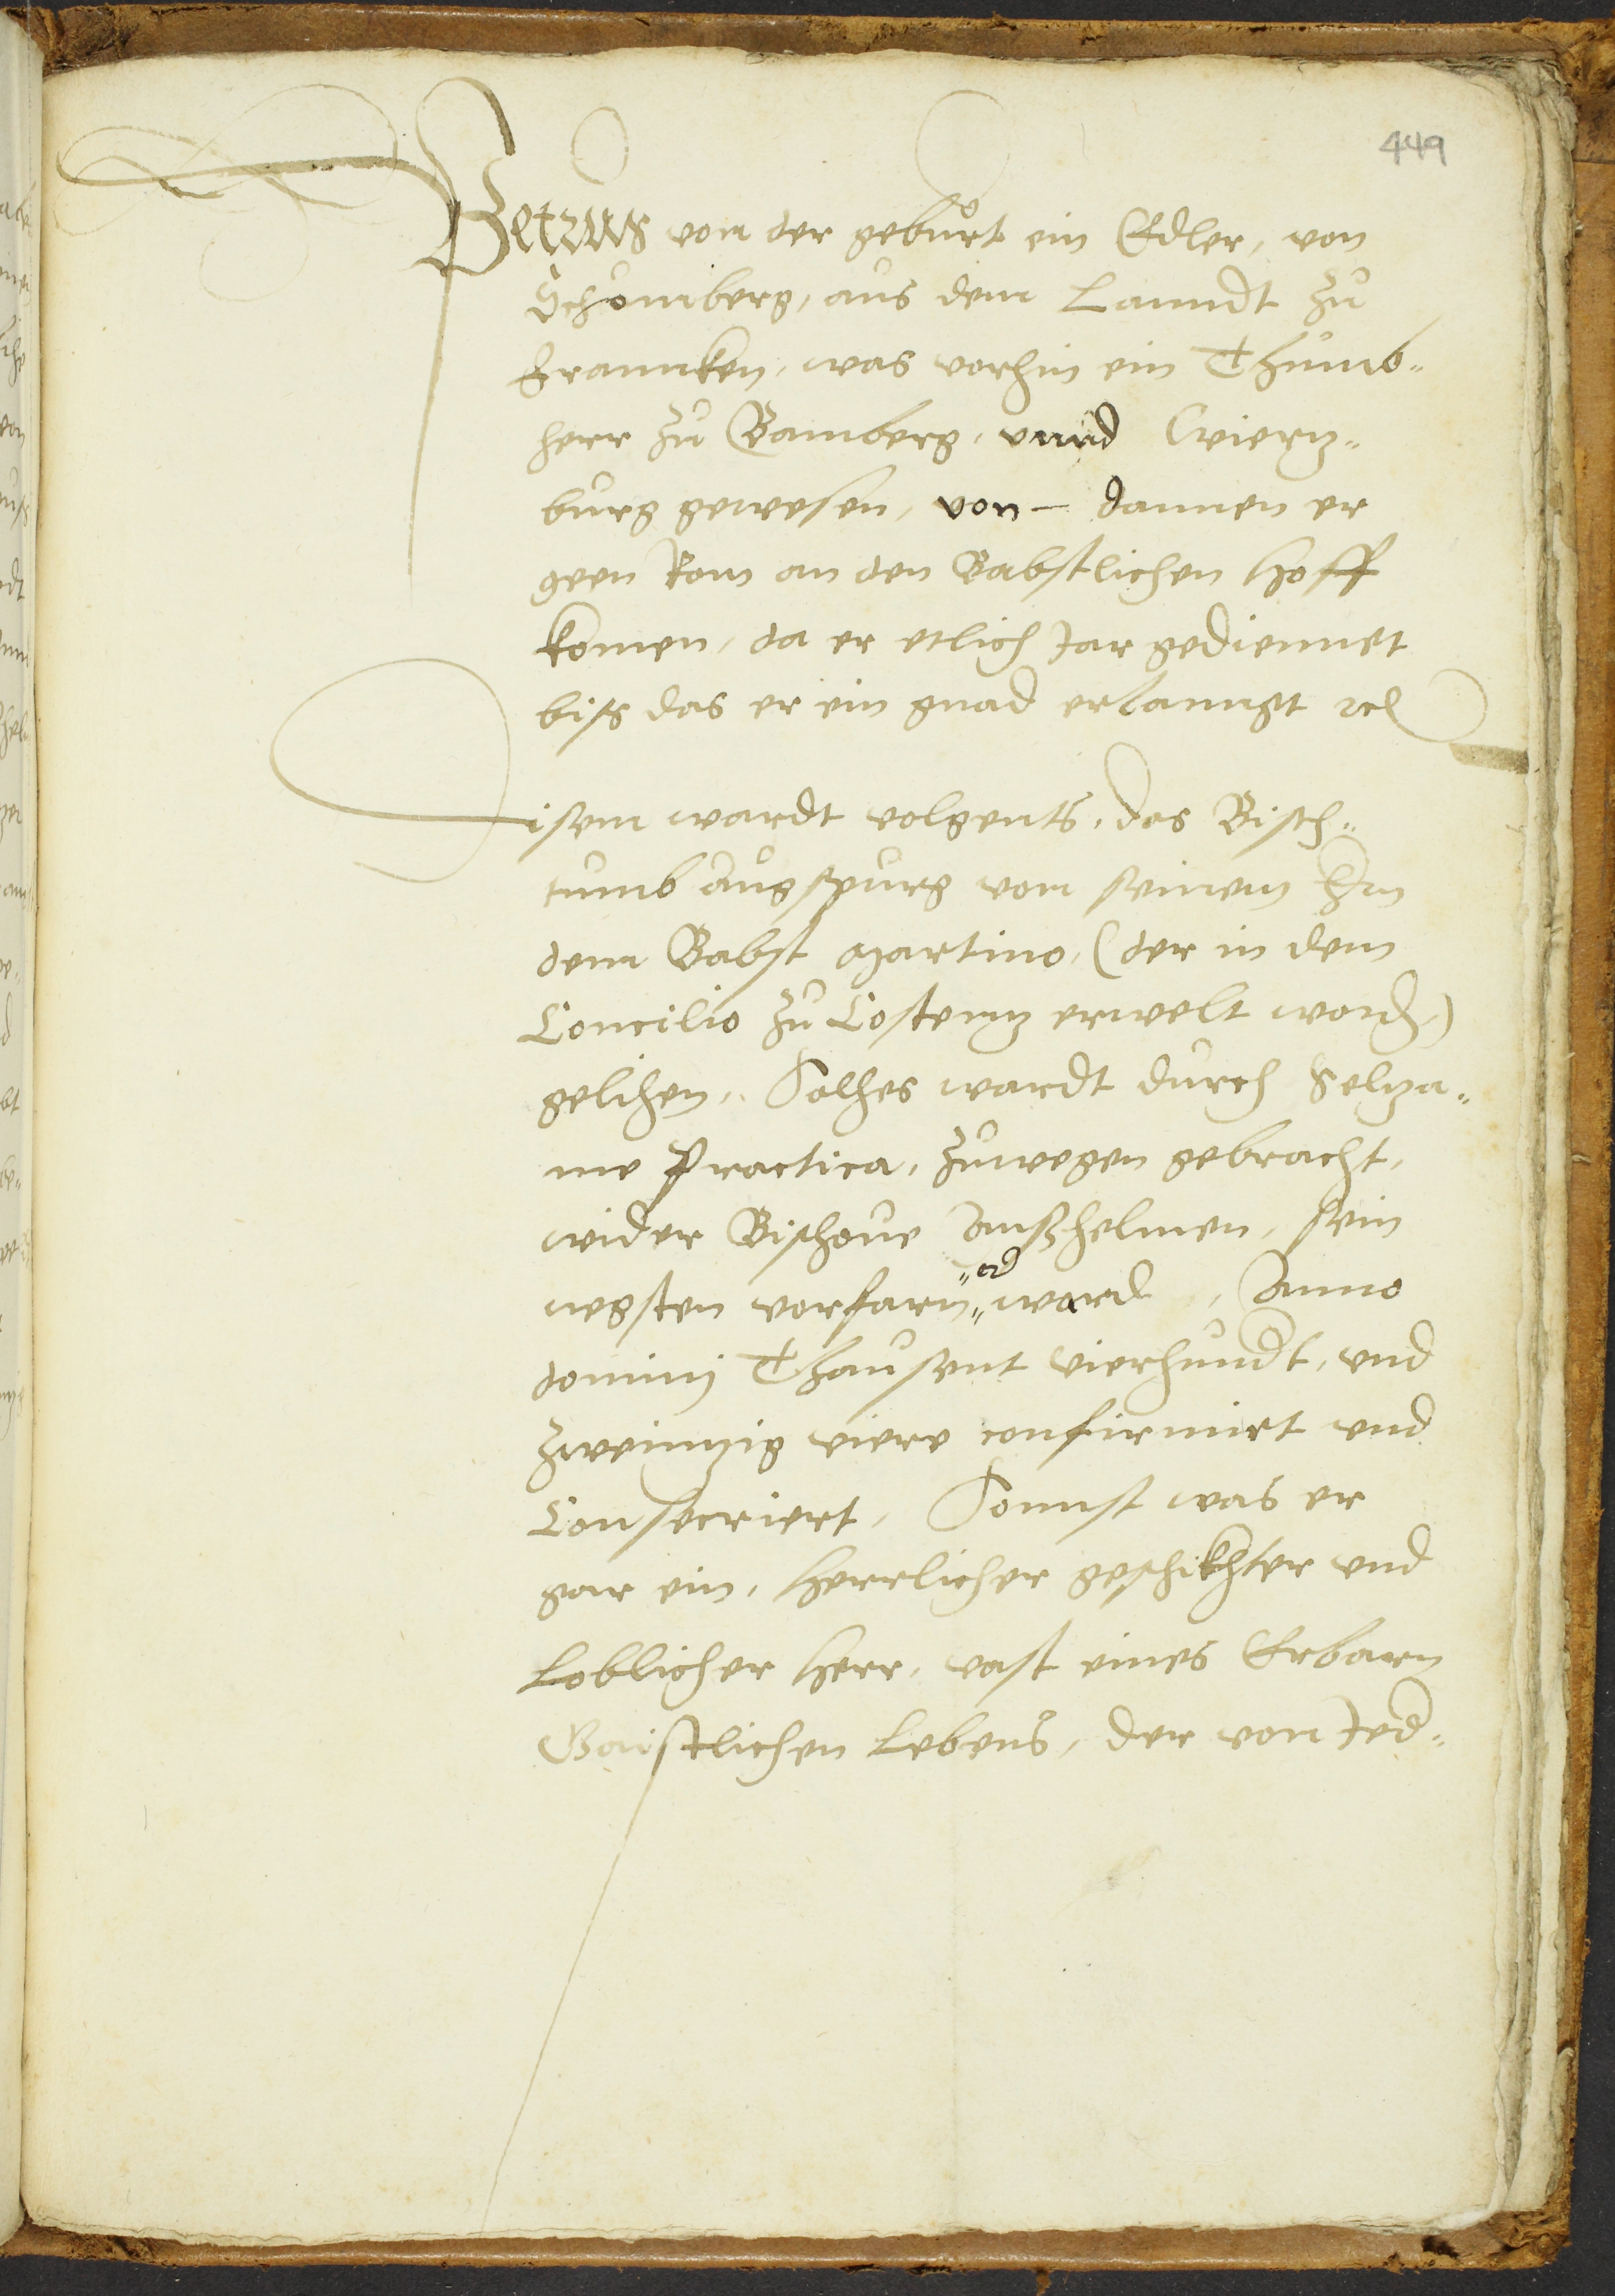 449
Petrus von der geburt ein Edler, von
Schomberg, aus dem Lanndt zu
Frannken, was vorhin ein Thumb„
herr zu Bamberg, vnnd Wiertz„
burg gewesen, von – dannen er
geen Rom an den Babstlichen Hoff
komen, da er etlich Jar gediennet
biss das er ein gnad erlanngt ꝛc
Disem wardt volgents, das Bisch„
tumb Augspurg von seinem Hrn
dem Babst Martino, (der in dem
Concilio zu Costentz erwelt word)
gelihen, Solhes wardt durch Seltza„
me Practica, zuwegen gebracht,
wider Bischoue Annsshelmen, sein
negsten vorfarn„ er
„ward, Anno
dominj Thausent vierhundt, vnd
zweinntzig viere confirmiert vnd
Consecriert, Sonnst was er
gar ein, herrlicher geschikhter vnd
Loblicher Herr, vast eines Erbarn
Gaistlichen Lebens, der von Jed„